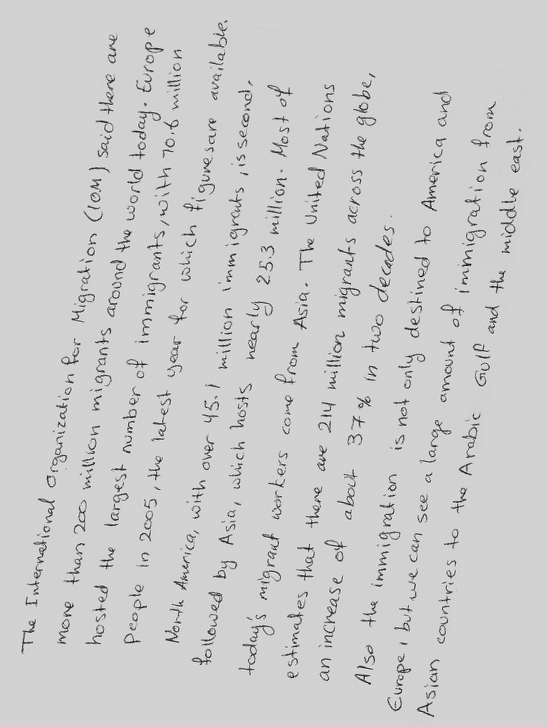 The International Organization for Migration (IOM) said there are
more than 200 million migrants around the world today. Europe
hosted the largest number of immigrants, with 70.6 million
People in 2005, the latest year for which figures are available.
North America, with over 45.1 million immigrants, is second,
followed by Asia, which hosts nearly 25.3 million. Most of
today's migrant workers come from Asia. The United Nations
estimates that there are 214 million migrants across the globe,
an increase of about 37% in two decades.
Also the immigration is not only destined to America and
Europe, but we can see a large amount of immigration from
Asian countries to the Arabic Gulf and the middle east.